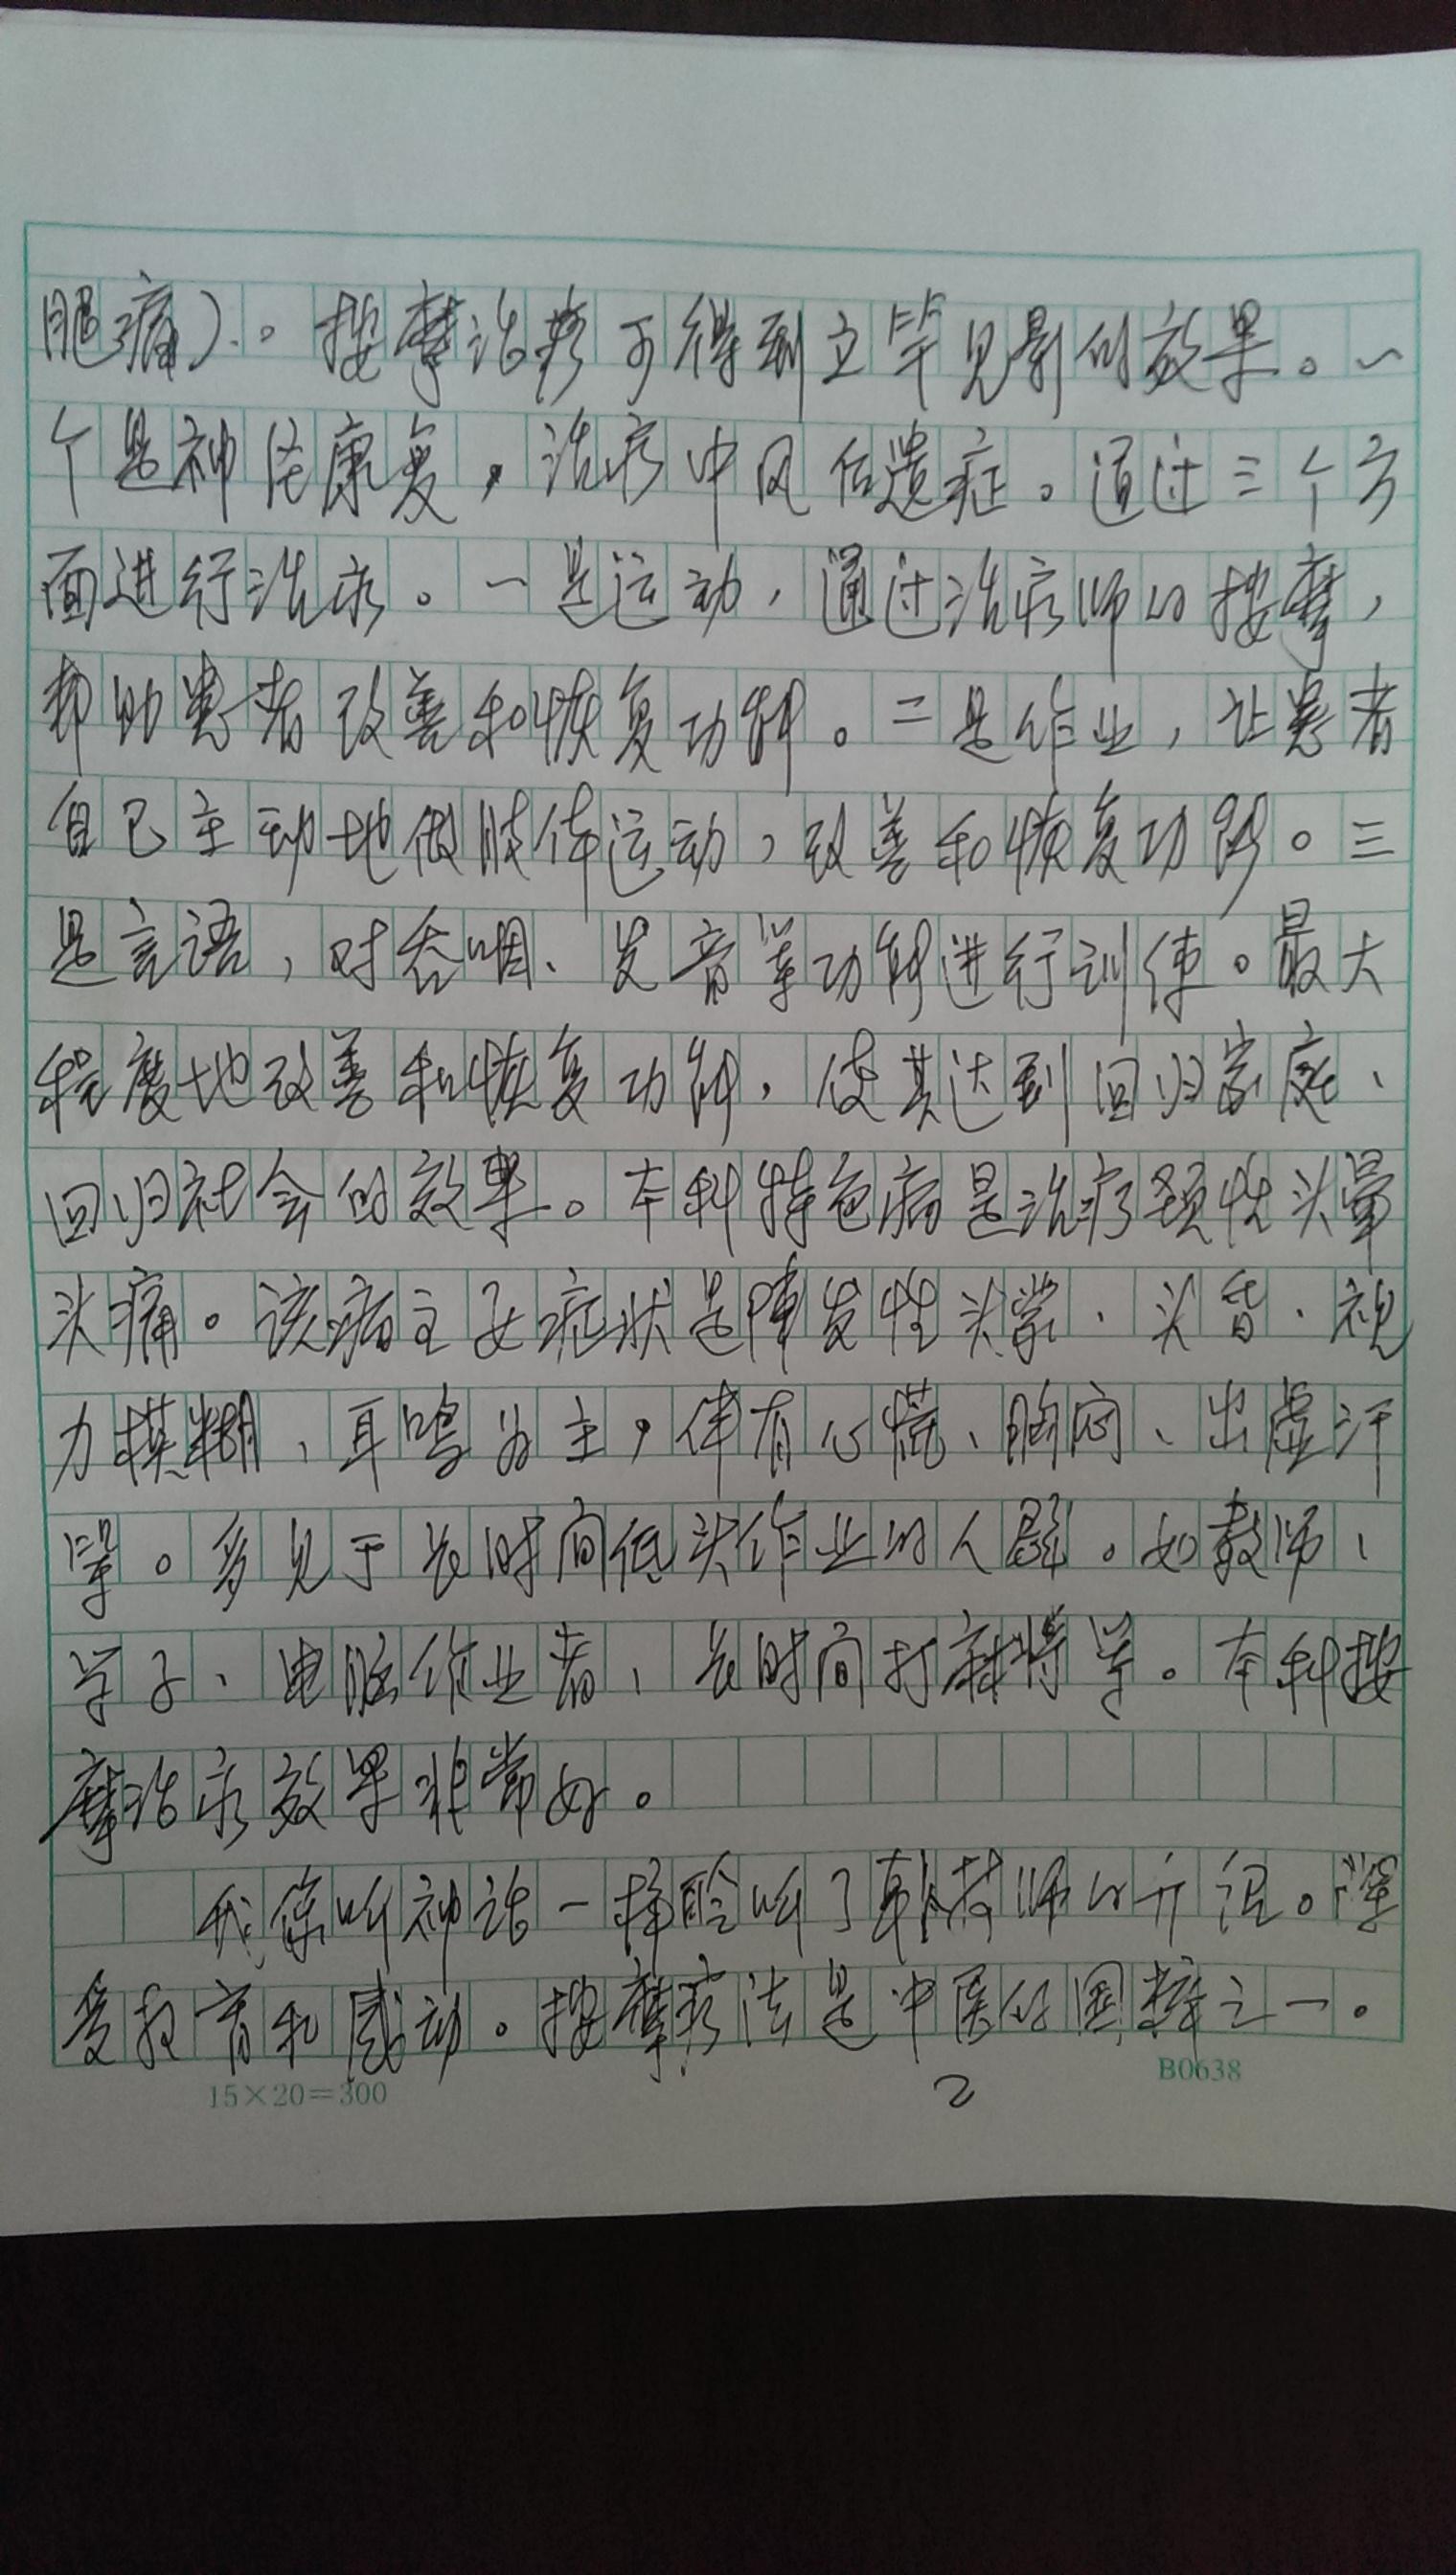 腿痛）。按摩治疗可得到立竿见影的效果。一
个是神经康复，治疗中风后遗症。通过三个方
面进行治疗。一是运动，通过治疗师的按摩，
帮助患者改善和恢复功能。二是作业，让患者
自己主动地做肢体运动，改善和恢复功能。三
是言语，对吞咽、发音等功能进行训练。最大
程度地改善和恢复功能，使其达到回归家庭、
回归社会的效果。本科特色病是治疗颈性头晕
头痛。该病主要症状是阵发性头蒙、头昏、视
力模糊、耳鸣为主，伴有心慌、胸闷、出虚汗
等。多见于长时间低头作业的人群。如教师、
学子、电脑作业者、长时间打麻将等。本科按
摩治疗效果非常好。
我像听神话一样聆听了韩技师的介绍。深
受教育和感动。按摩疗法是中医的国粹之一。
15×20=300
2
B0638